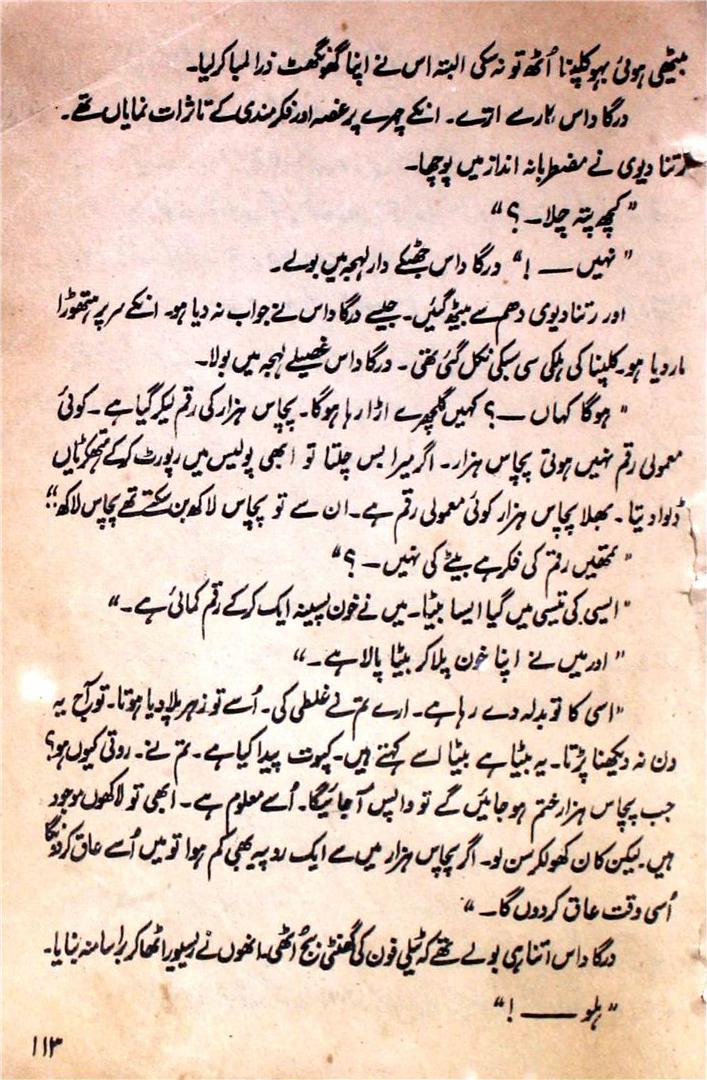 بیٹھی ہوئی بہو کلپنا اُٹھ تو نہ سکی البتہ اس نے اپنا گھونگھٹ ذرا لمبا کر لیا۔
درگا داس کار سے اترے۔ انکے چہرے پر غصہ اور فکر مندی کے تاثرات نمایاں تھے۔
رتنا دیوی نے مضطربانہ انداز میں پوچھا۔
"کچھ پتہ چلا ــ؟"
"نہیں ــ!" درگا داس جھٹکے دار لہجہ میں بولے۔
اور رتنا دیوی دھم سے بیٹھ گئیں۔ جیسے درگا داس نے جواب نہ دیا ہو۔ انکے سر پر ہتھوڑا
مار دیا ہو۔ کلپنا کی ہلکی سی سسکی نکل گئی تھی۔ درگا داس غصیلے لہجہ میں بولا۔
"ہوگا کہاں ــ؟ کہیں گلچھرے اڑا رہا ہوگا۔ پچاس ہزار کی رقم لیکر گیا ہے۔ کوئی
معمولی رقم نہیں ہوتی پچاس ہزار۔ اگر میرا بس چلتا تو ابھی پولیس میں رپورٹ کر کے ہتھکڑیاں
ڈلوا دیتا۔ بھلا پچاس ہزار کوئی معمولی رقم ہے۔ ان سے تو پچاس لاکھ بن سکتے تھے پچاس لاکھ!"
"تمھیں رقم کی فکر ہے بیٹے کی نہیں ــ؟"
"ایسی کی تیسی میں گیا ایسا بیٹا۔ میں نے خون پسینہ ایک کر کے رقم کمائی ہے۔"
"اور میں نے اپنا خون پلا کر بیٹا پالا ہے۔"
"اسی کا تو بدلہ دے رہا ہے۔ ارے تم نے غلطی کی۔ اُسے تو زہر پلا دیا ہوتا۔ تو آج یہ
دن نہ دیکھنا پڑتا۔ یہ بیٹا ہے بیٹا اسے کہتے ہیں۔ کپوت پیدا کیا ہے۔ تم نے۔ روتی کیوں ہو؟
جب پچاس ہزار ختم ہو جائیں گے تو واپس آ جائیگا۔ اُسے معلوم ہے۔ ابھی تو لاکھوں موجود
ہیں۔ لیکن کان کھولکر سن لو۔ اگر پچاس ہزار میں سے ایک روپیہ بھی کم ہوا تو میں اُسے عاق کر دونگا
اُسی وقت عاق کر دوں گا ــ"
درگا داس اتنا ہی بولے تھے کہ ٹیلی فون کی گھنٹی بج اُٹھی۔ انھوں نے ریسیور اٹھا کر برا سا منہ بنایا۔
"ہلو ــــ!"
۱۱۳